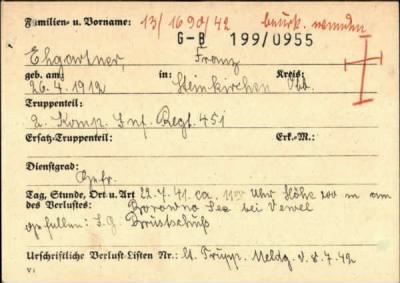 Familien- u. Vorname: 13/1690/42 beurk. werden
G-B 199/0955
Ehgartner, Franz
geb. am: in: Kreis:
26.4.1912 Steinkirchen Obb.
Truppenteil:
2. Komp. Inf. Regt. 451
Ersatz-Truppenteil: Erk.-M.:
Dienstgrad:
Gefr.
Tag, Stunde, Ort u. Art 22.7.41 ca. Uhr Höhe 200 m am
des Verlustes: Borowno See bei Newel
gefallen: Brustschuß
Urschriftliche Verlust-Listen Nr.: lt. Trupp. Meldg. v. 8.7.42